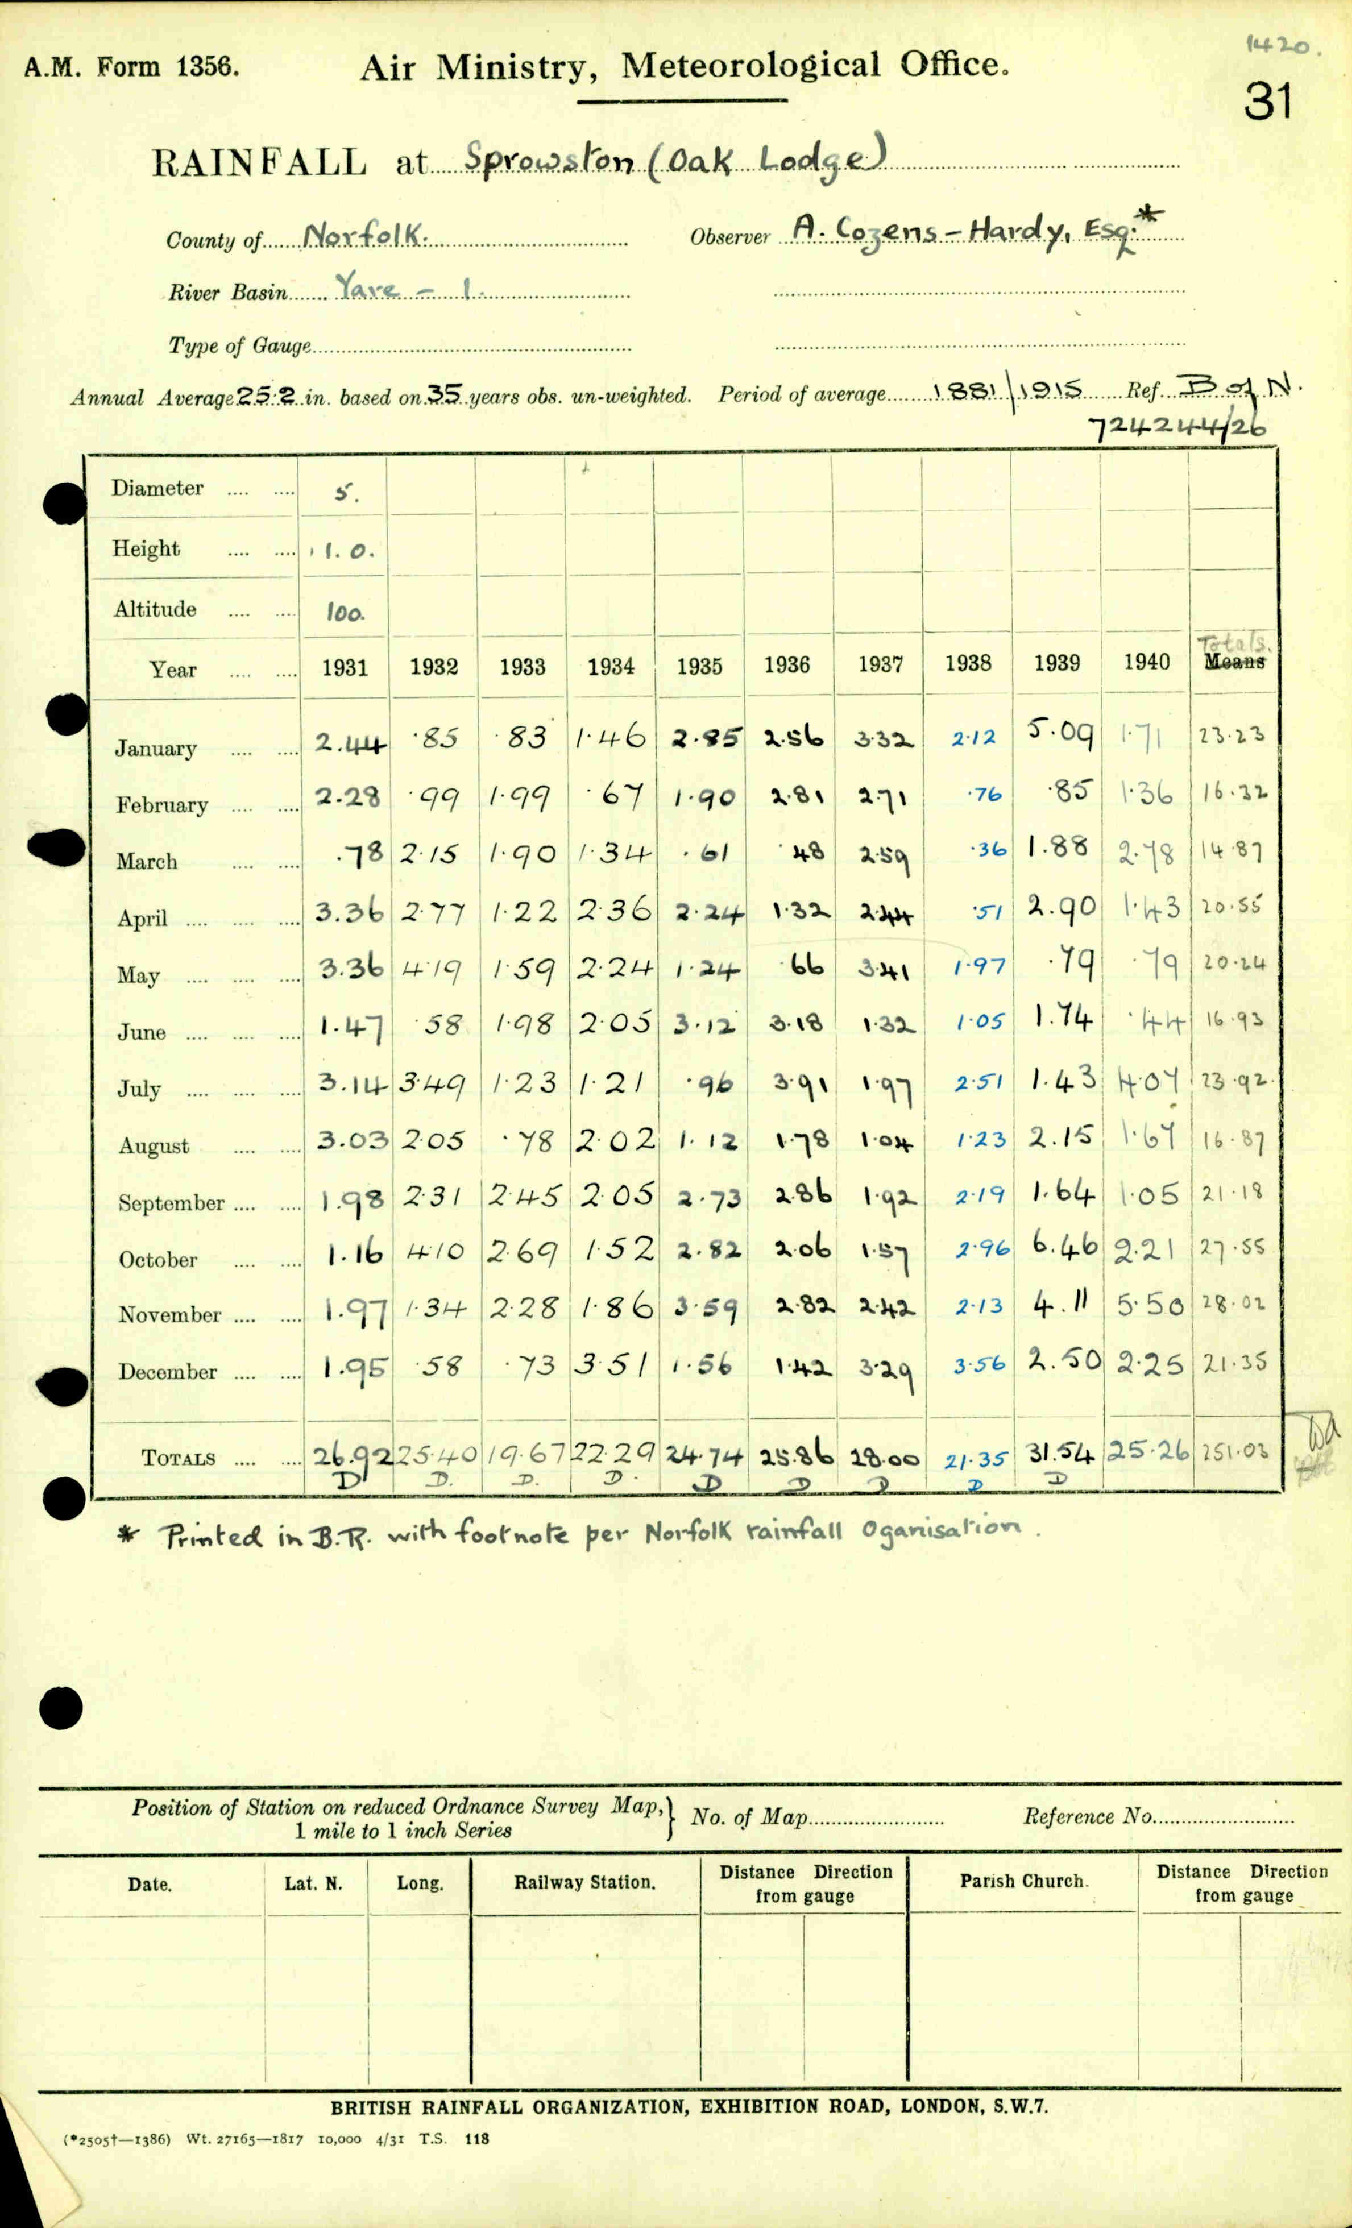 1420.
A.M. Form 1356. Air Ministry, Meteorological Office.
31
RAINFALL at Sprowston (Oak Lodge)
County of Norfolk. Observer A. Cozens-Hardy, Esq.*
River Basin Yare - 1.
Type of Gauge
Annual Average 25.2 in. based on 35 years obs. un-weighted. Period of average 1881/1915 Ref. B of N.
724244/26
Diameter 5.
Height 1.0.
Altitude 100.
Totals.
Year 1931 1932 1933 1934 1935 1936 1937 1938 1939 1940 Means
January 2.44 .85 .83 1.46 2.85 2.56 3.32 2.12 5.09 1.71 23.23
February 2.28 .99 1.99 .67 1.90 2.81 2.71 .76 .85 1.36 16.32
March .78 2.15 1.90 1.34 .61 .48 2.59 .36 1.88 2.78 14.87
April 3.36 2.77 1.22 2.36 2.24 1.32 2.44 .51 2.90 1.43 20.55
May 3.36 4.19 1.59 2.24 1.24 .66 3.41 1.97 .79 .79 20.24
June 1.47 .58 1.98 2.05 3.12 3.18 1.32 1.05 1.74 .44 16.93
July 3.14 3.49 1.23 1.21 .96 3.91 1.97 2.51 1.43 4.07 23.92
August 3.03 2.05 .78 2.02 1.12 1.78 1.04 1.23 2.15 1.67 16.87
September 1.98 2.31 2.45 2.05 2.73 2.86 1.92 2.19 1.64 1.05 21.18
October 1.16 4.10 2.69 1.52 2.82 2.06 1.57 2.96 6.46 2.21 27.55
November 1.97 1.34 2.28 1.86 3.59 2.82 2.42 2.13 4.11 5.50 28.02
December 1.95 .58 .73 3.51 1.56 1.42 3.29 3.56 2.50 2.25 21.35
TOTALS 26.92 25.40 19.67 22.29 24.74 25.86 28.00 21.35 31.54 25.26 251.03
D D. D. D. D D D D D
* Printed in B.R. with footnote per Norfolk rainfall Oganisation.
Position of Station on reduced Ordnance Survey Map, No. of Map Reference No.
1 mile to 1 inch Series
Date. Lat. N. Long. Railway Station. Distance Direction from gauge Parish Church. Distance Direction from gauge
BRITISH RAINFALL ORGANIZATION, EXHIBITION ROAD, LONDON, S.W.7.
(*2505†—1386) Wt. 27165—1817 10,000 4/31 T.S. 118